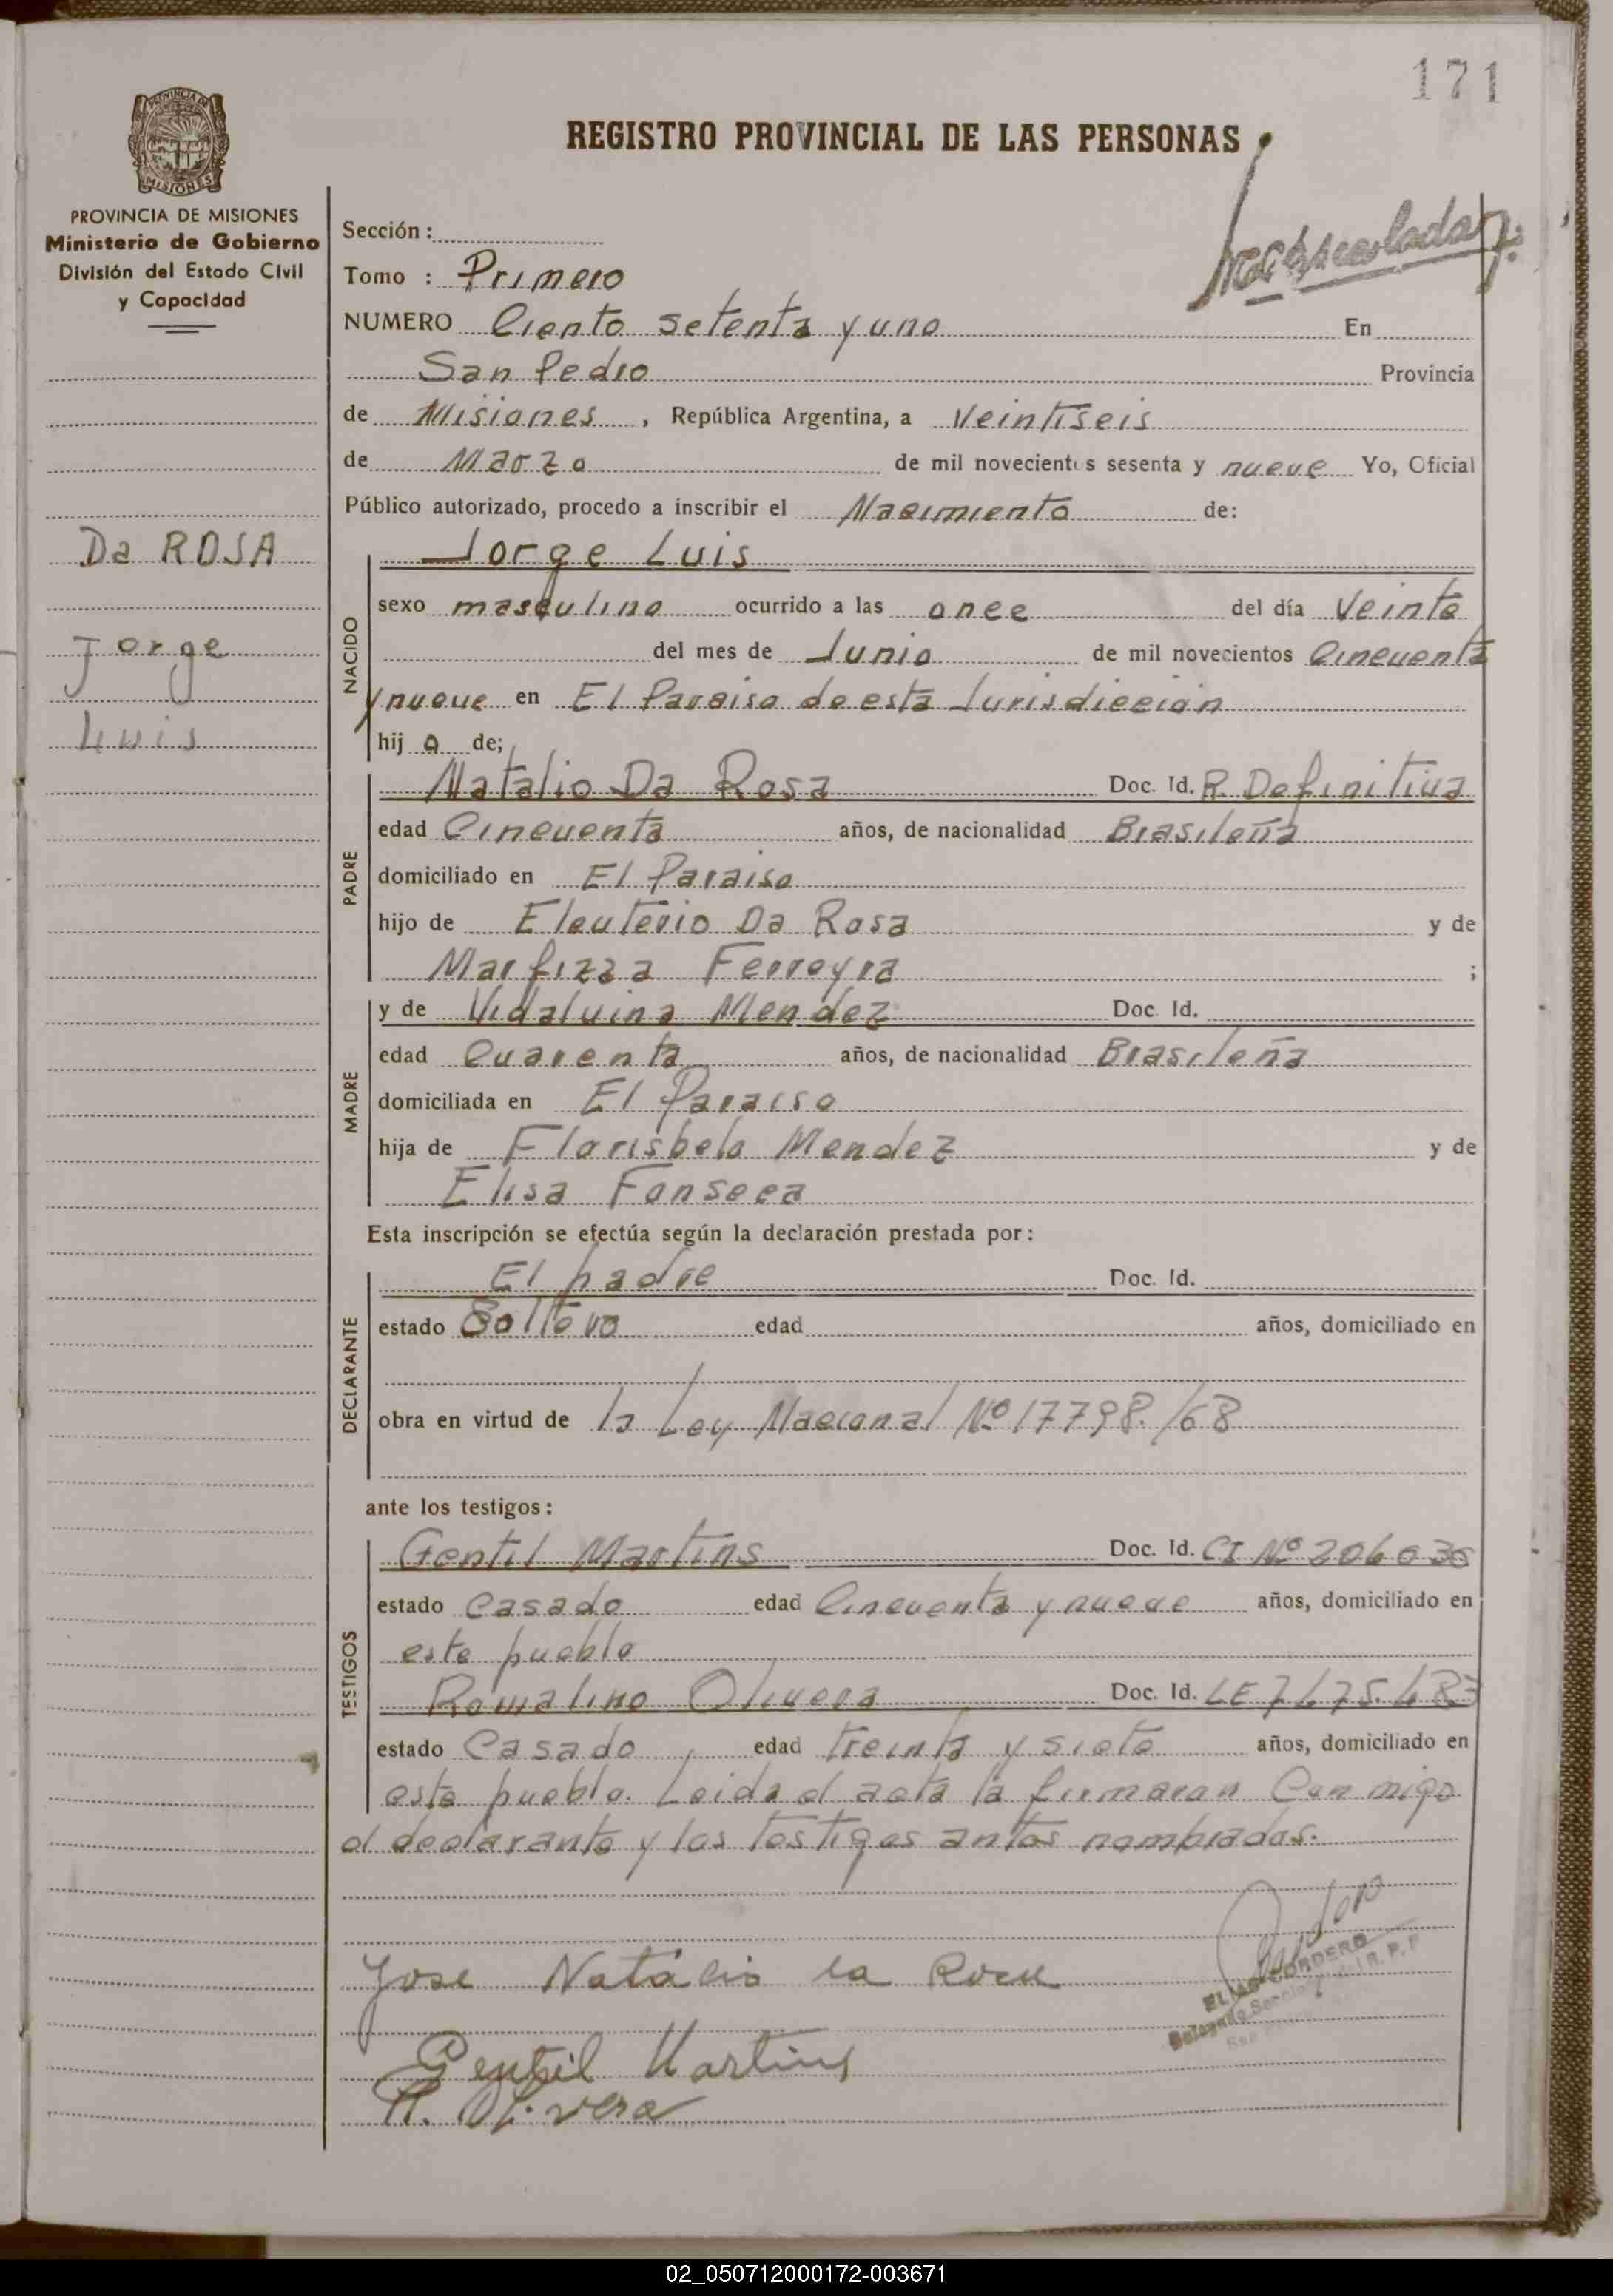 171
REGISTRO PROVINCIAL DE LAS PERSONAS
PROVINCIA DE MISIONES
MISIONES
PROVINCIA DE MISIONES
Ministerio de Gobierno
División del Estado Civil
y Capacidad
Da ROSA
Jorge
Luis
Sección :
Tomo : Primero
NUMERO Ciento setenta y uno En
San Pedro Provincia
de Misiones , República Argentina, a Veintiseis
de Marzo de mil novecientos sesenta y nueve Yo, Oficial
Público autorizado, procedo a inscribir el Nacimiento de:
Jorge Luis
NACIDO
sexo masculino ocurrido a las once del día Veinte
del mes de Junio de mil novecientos Cincuenta
y nueve en El Paraiso de esta Jurisdiccion
hij o de;
PADRE
Natalio Da Rosa Doc. Id. R. Definitiva
edad Cincuenta años, de nacionalidad Brasileña
domiciliado en El Paraiso
hijo de Eleuterio Da Rosa y de
Marfizza Ferreyra ;
MADRE
y de Vidalvina Mendez Doc. Id.
edad Cuarenta años, de nacionalidad Brasileña
domiciliada en El Paraiso
hija de Florisbelo Mendez y de
Elisa Fonseca
Esta inscripción se efectúa según la declaración prestada por:
DECLARANTE
El padre Doc. Id.
estado Soltero edad años, domiciliado en
obra en virtud de la Ley Nacional Nº 17798./68
ante los testigos:
TESTIGOS
Gentil Martins Doc. Id. CI Nº 206036
estado Casado edad Cincuenta y nueve años, domiciliado en
este pueblo
Romalino Olivera Doc. Id. LE
estado Casado edad treinta y siete años, domiciliado en
este pueblo. Leida el acta la firmaran Con migo
el declarante y los testigos antes nombrados.
Jose Natalio
ELIAS CORDERO
Delegado Seccional del R. P. P.
Gentil Martins
R. Olivera
02_050712000172-003671